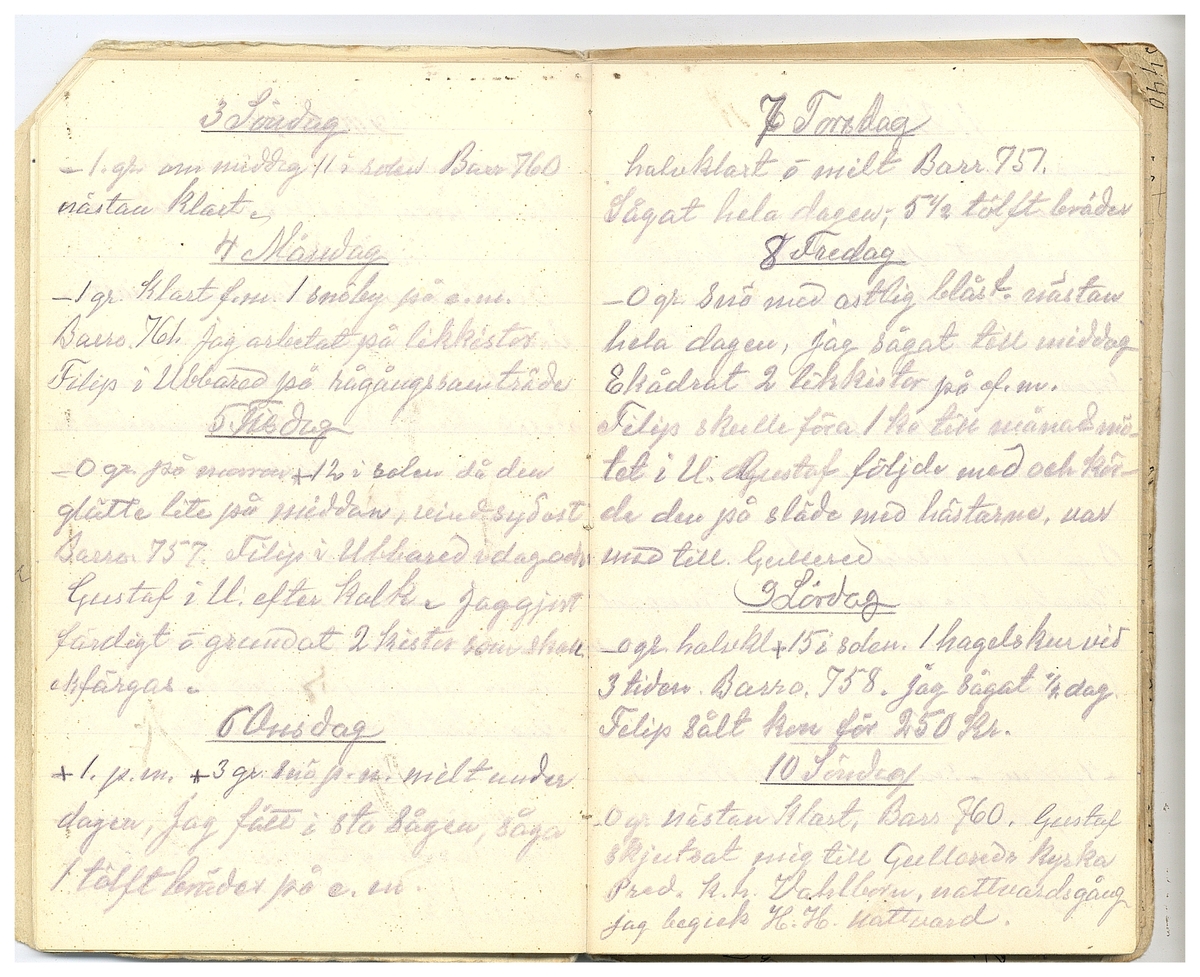 3 Söndag
-1. gr. om middag 11 i solen Barr 760
nästan klart.
4 Måndag
-1 gr. Klart f.m. 1 snöby på e.m.
Barro. 761. jag arbetat på likkistor
Filip i Ubbared på rågångssamträde
5 Tisdag
-0 gr. på morron +12 i solen då den
glütte lite på middan, vind sydost
Barro. 757. Filip i Ubbared idag och
Gustaf i U. efter kalk. jag gjort
färdigt ö grundat 2 kistor som skall
ekfärgas.
6 Onsdag
+1. p.m. +3 gr. snö p.m. milt under
dagen, jag fått i sta sågen, såga
1 tölft bräder på e.m.
7 Torsdag
halvklart ö milt Barr. 751.
Sågat hela dagen, 5 1/2 tölft bräder
8 Fredag
-0 gr. snö med ostlig blåst. nästan
hela dagen, jag sågat till middag
Ekådrat 2 likkistor på ef.m.
Filip skulle föra 1 ko till månadsmö-
tet i U. Gustaf följde med och kör-
de den på släde med hästarne. var
med till Gullered
9 Lördag
-0 gr. halvkl +15 i solen. 1 hagelskur vid
3 tiden. Barro. 758. jag sågat 1/2 dag
Filip sålt kon för 250 Kr.
10 Söndag
-0 gr. nästan Klart, Barr 760. Gustaf
skjutsat mig till Gullereds kyrka
Pred. k.h. Vahlborn, nattvardsgång
jag begick H.H. nattvard.